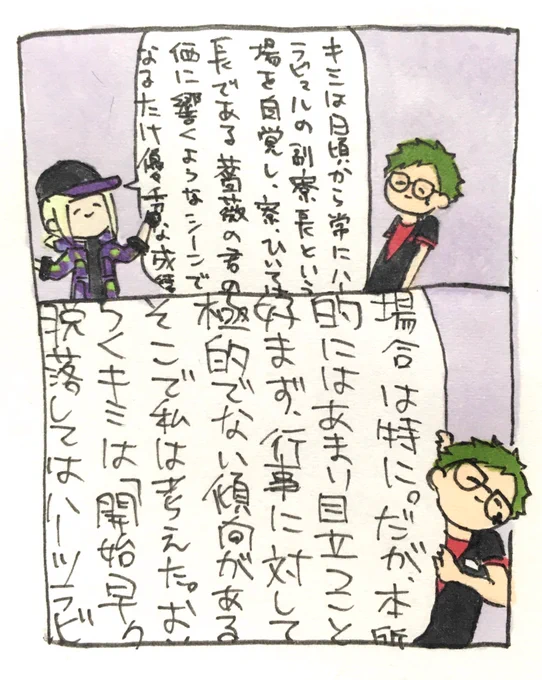 キミは日頃から常にハー
ラビュルの副寮長という
場を自覚し、寮、ひいては
長である薔薇の君の
価に響くようなシーンで
なるたけ優秀な成績
場合は特に。だが、本質
的にはあまり目立つこと
好まず、行事に対して
極的でない傾向がある
そこで私は考えた。おそ
らくキミは「開始早々
脱落してはハーツラビ